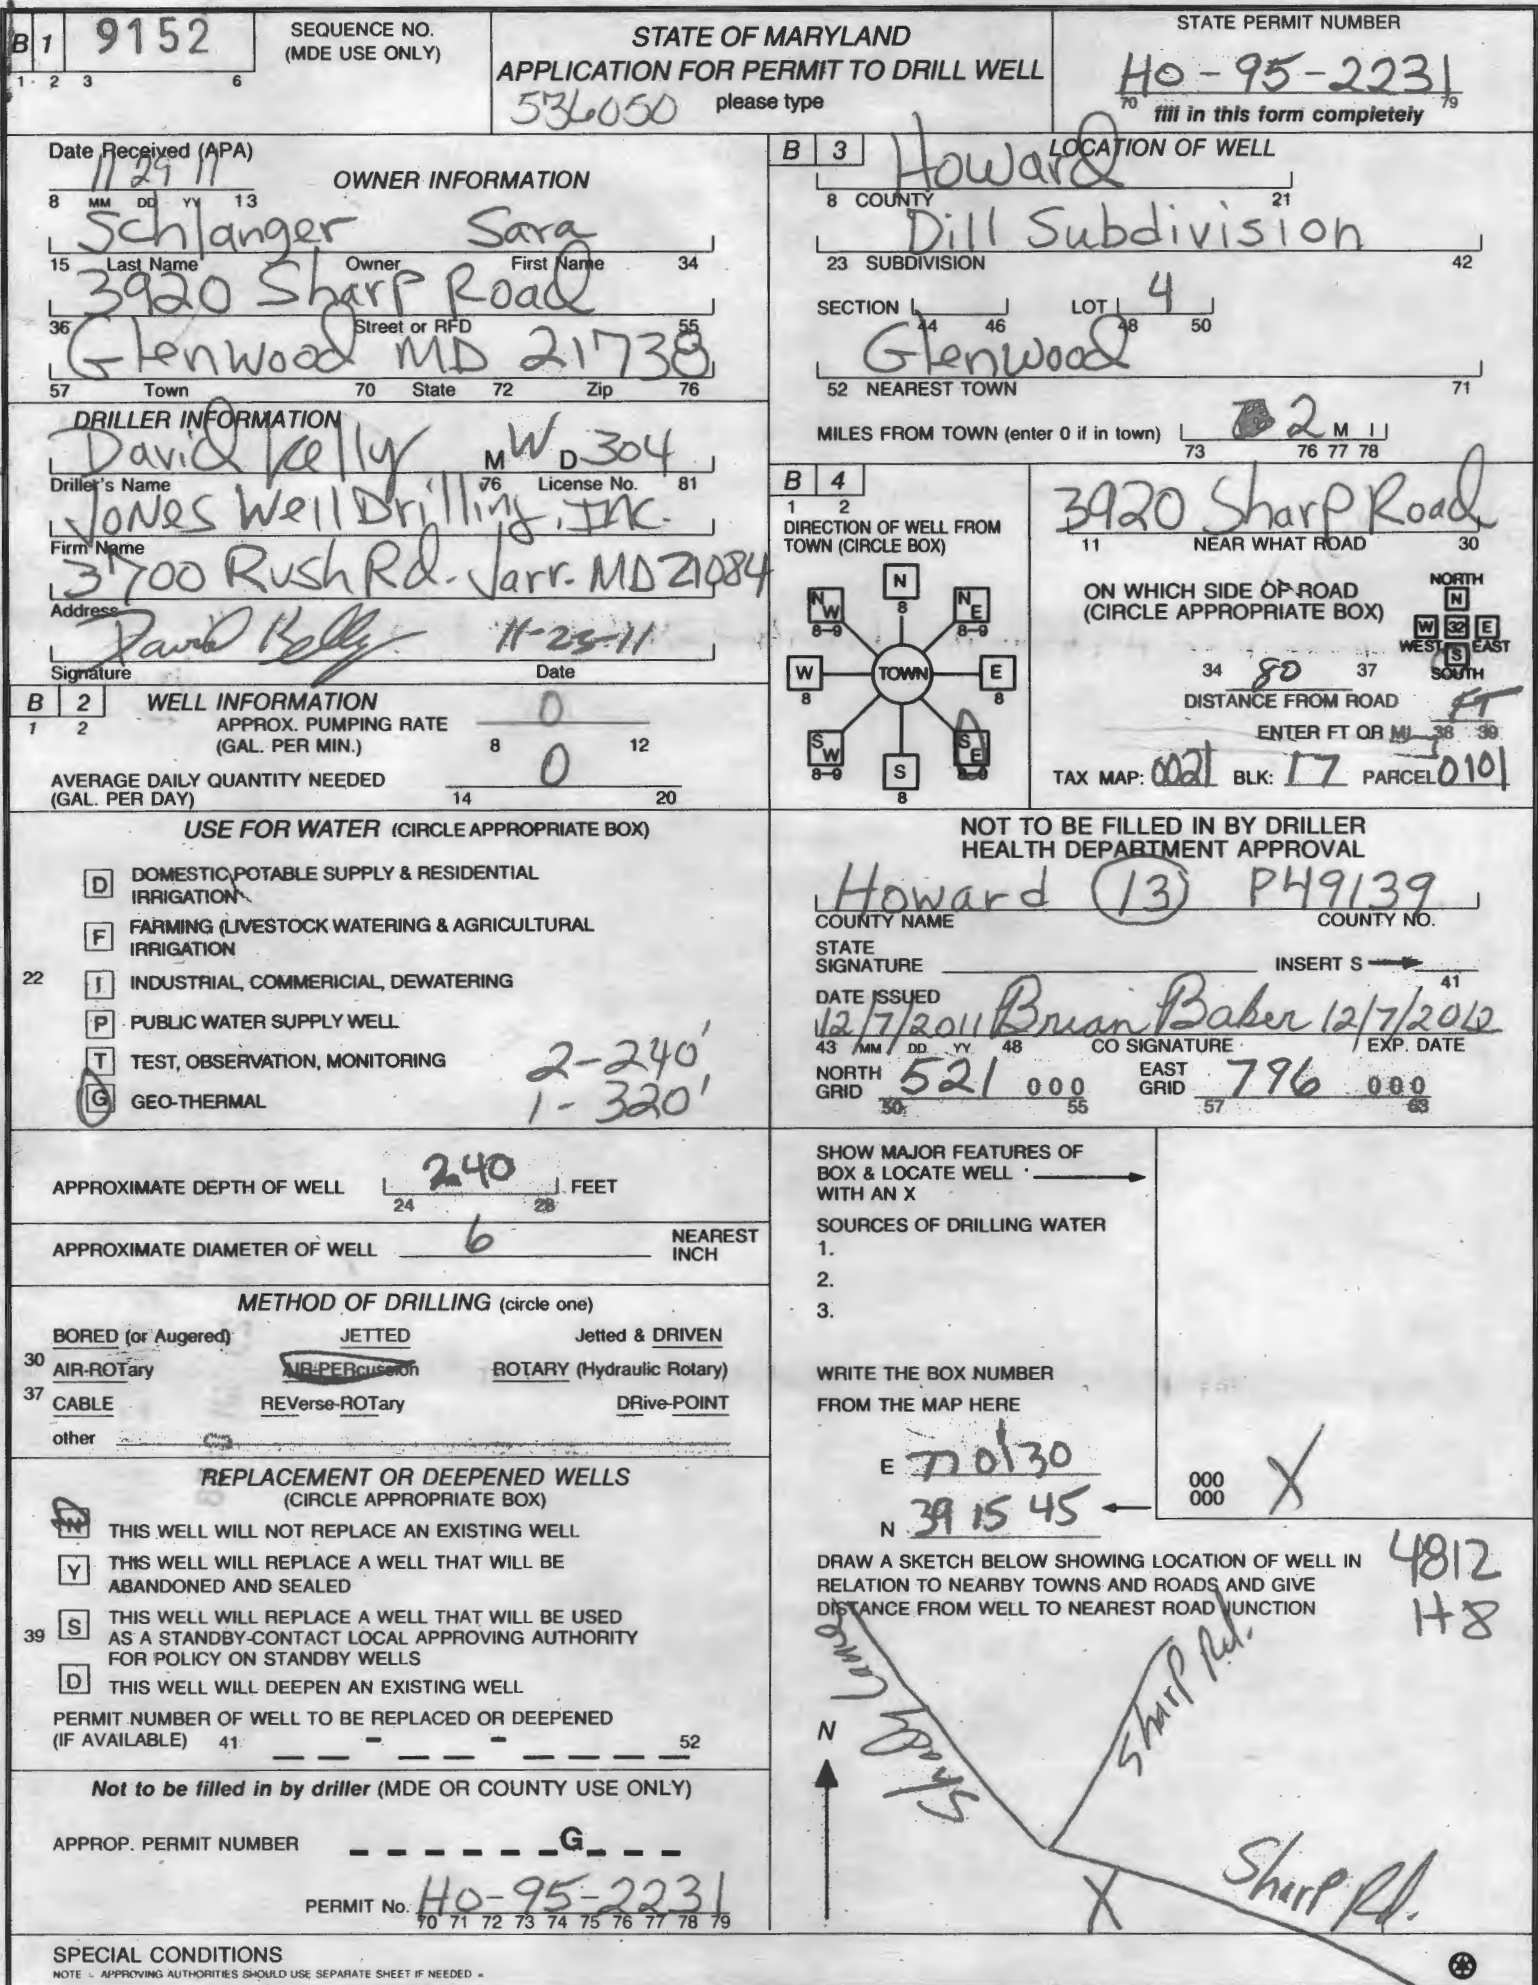 B 1 9152
1 2 3 6
SEQUENCE NO.
(MDE USE ONLY)
STATE OF MARYLAND
APPLICATION FOR PERMIT TO DRILL WELL
536050 please type
STATE PERMIT NUMBER
HO-95-2231
70 79
fill in this form completely
Date Received (APA)
11 29 11
8 MM DD YY 13
OWNER INFORMATION
Schlanger Sara
15 Last Name Owner First Name 34
3920 Sharp Road
36 Street or RFD 55
Glenwood MD 21738
57 Town 70 State 72 Zip 76
DRILLER INFORMATION
David Kelly M W D 304
Driller's Name 76 License No. 81
Jones Well Drilling, Inc.
Firm Name
3700 Rush Rd. Jarr. MD 21084
Address
David Kelly 11-23-11
Signature Date
B 2 WELL INFORMATION
1 2 APPROX. PUMPING RATE 0
(GAL. PER MIN.) 8 12
AVERAGE DAILY QUANTITY NEEDED 0
(GAL. PER DAY) 14 20
USE FOR WATER (CIRCLE APPROPRIATE BOX)
D DOMESTIC POTABLE SUPPLY & RESIDENTIAL
IRRIGATION
F FARMING (LIVESTOCK WATERING & AGRICULTURAL
IRRIGATION
22 I INDUSTRIAL, COMMERICIAL, DEWATERING
P PUBLIC WATER SUPPLY WELL
T TEST, OBSERVATION, MONITORING 2-240'
G GEO-THERMAL 1-320'
APPROXIMATE DEPTH OF WELL 240 FEET
24 28
APPROXIMATE DIAMETER OF WELL 6 NEAREST
INCH
METHOD OF DRILLING (circle one)
BORED (or Augered) JETTED Jetted & DRIVEN
30 AIR-ROTary AIR-PERcussion ROTARY (Hydraulic Rotary)
37 CABLE REVerse-ROTary DRive-POINT
other
REPLACEMENT OR DEEPENED WELLS
(CIRCLE APPROPRIATE BOX)
N THIS WELL WILL NOT REPLACE AN EXISTING WELL
Y THIS WELL WILL REPLACE A WELL THAT WILL BE
ABANDONED AND SEALED
39 S THIS WELL WILL REPLACE A WELL THAT WILL BE USED
AS A STANDBY-CONTACT LOCAL APPROVING AUTHORITY
FOR POLICY ON STANDBY WELLS
D THIS WELL WILL DEEPEN AN EXISTING WELL
PERMIT NUMBER OF WELL TO BE REPLACED OR DEEPENED
(IF AVAILABLE) 41 - - 52
Not to be filled in by driller (MDE OR COUNTY USE ONLY)
APPROP. PERMIT NUMBER G
PERMIT No. HO-95-2231
70 71 72 73 74 75 76 77 78 79
SPECIAL CONDITIONS
NOTE - APPROVING AUTHORITIES SHOULD USE SEPARATE SHEET IF NEEDED -
B 3 LOCATION OF WELL
Howard
8 COUNTY 21
Dill Subdivision
23 SUBDIVISION 42
SECTION LOT 4
44 46 48 50
Glenwood
52 NEAREST TOWN 71
MILES FROM TOWN (enter 0 if in town) 2 M I
73 76 77 78
B 4
1 2
DIRECTION OF WELL FROM
TOWN (CIRCLE BOX)
N
8
NW NE
8-9 8-9
W TOWN E
8 8
SW SE
8-9 8-9
S
8
3920 Sharp Road
11 NEAR WHAT ROAD 30
ON WHICH SIDE OF ROAD
(CIRCLE APPROPRIATE BOX)
NORTH
N
W 32 E
WEST S EAST
SOUTH
34 80 37
DISTANCE FROM ROAD FT
ENTER FT OR MI 38 39
TAX MAP: 0021 BLK: 17 PARCEL 0101
NOT TO BE FILLED IN BY DRILLER
HEALTH DEPARTMENT APPROVAL
Howard 13 P49139
COUNTY NAME COUNTY NO.
STATE
SIGNATURE INSERT S
41
DATE ISSUED
12/7/2011 Brian Baker 12/7/2012
43 MM DD YY 48 CO SIGNATURE EXP. DATE
NORTH
GRID 521 000
50 55
EAST
GRID 796 000
57 63
SHOW MAJOR FEATURES OF
BOX & LOCATE WELL
WITH AN X
SOURCES OF DRILLING WATER
1.
2.
3.
WRITE THE BOX NUMBER
FROM THE MAP HERE
E 770130
N 39 15 45
000
000
X
DRAW A SKETCH BELOW SHOWING LOCATION OF WELL IN
RELATION TO NEARBY TOWNS AND ROADS AND GIVE
DISTANCE FROM WELL TO NEAREST ROAD JUNCTION
4812
H8
Shady Lane
Sharp Rd.
N
X
Sharp Rd.